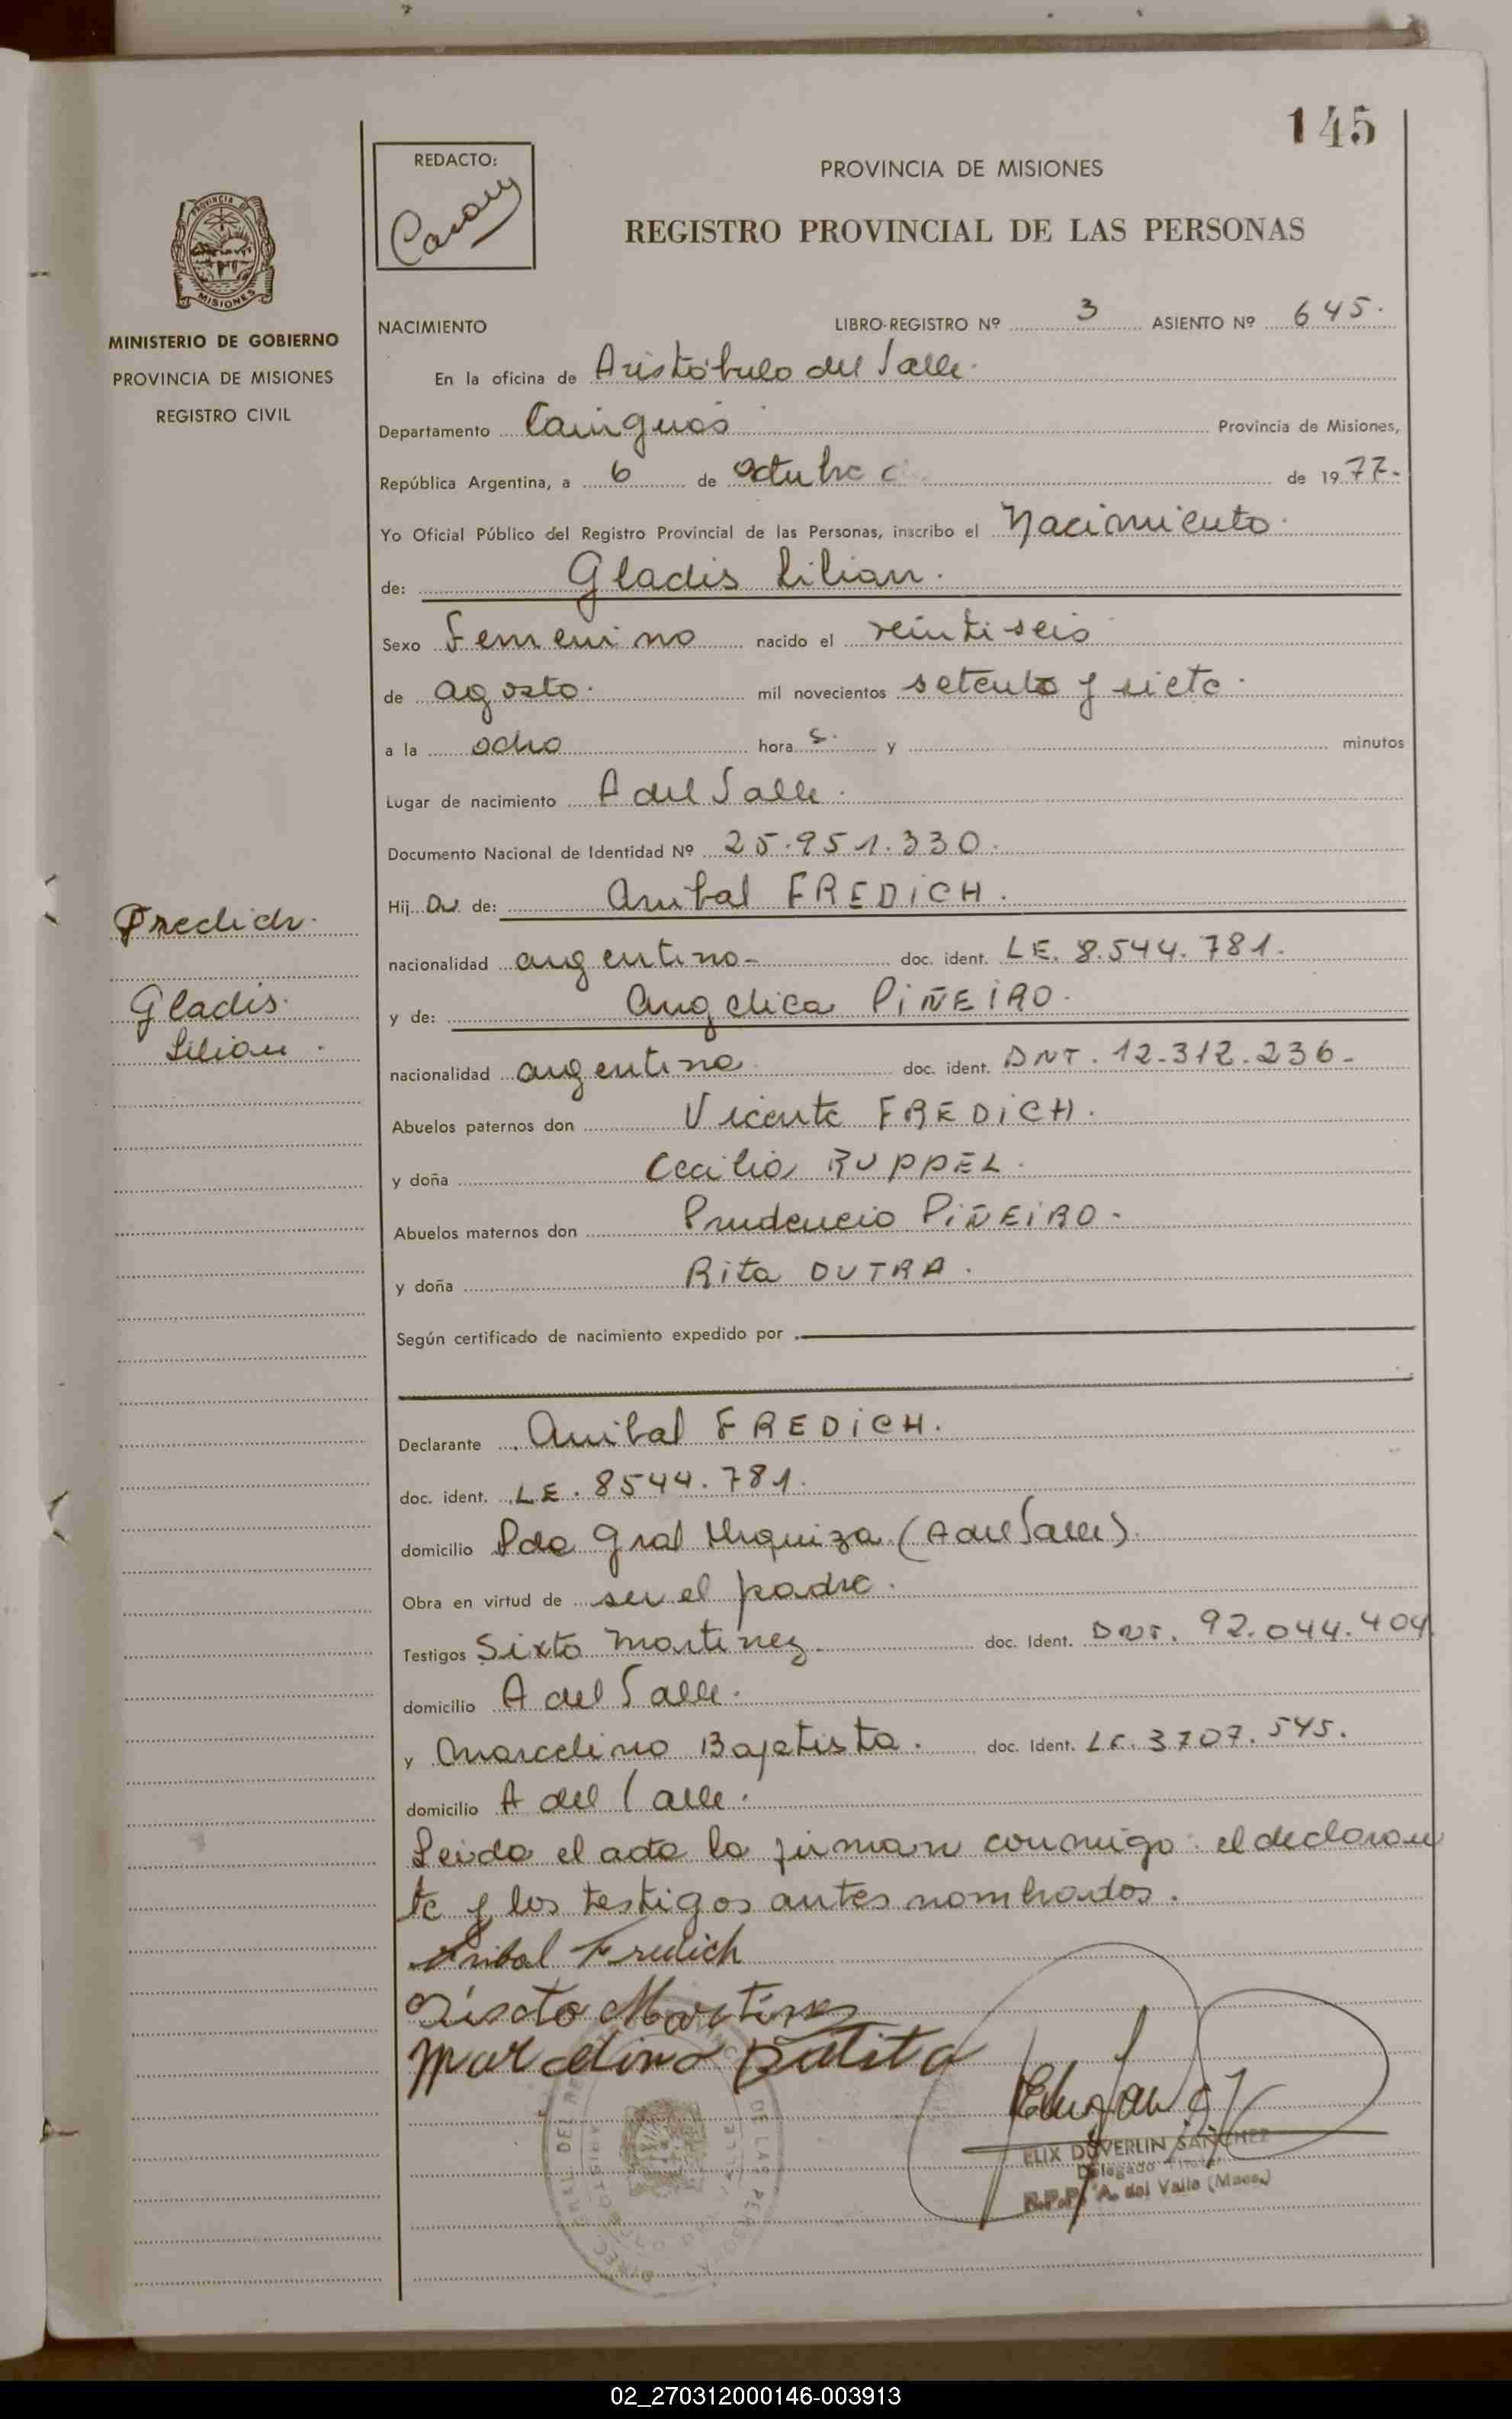 145
REDACTO:
PROVINCIA DE MISIONES
REGISTRO PROVINCIAL DE LAS PERSONAS
PROVINCIA DE MISIONES
MINISTERIO DE GOBIERNO
PROVINCIA DE MISIONES
REGISTRO CIVIL
NACIMIENTO LIBRO-REGISTRO Nº 3 ASIENTO Nº 645.
En la oficina de Aristóbulo del Valle.
Departamento Cainguás Provincia de Misiones,
República Argentina, a 6 de octubre de 1977.-
Yo Oficial Público del Registro Provincial de las Personas, inscribo el Nacimiento.
de: Gladis Lilian.
Sexo Femenino nacido el veintiseis
de agosto. mil novecientos setenta y siete.
a la ocho hora s. y minutos
Lugar de nacimiento A del Valle.
Documento Nacional de Identidad Nº 25.951.330.
Hij a de: Anibal FREDICH.
nacionalidad argentino- doc. ident. LE. 8.544.781.
y de: Angelica PIÑEIRO.
nacionalidad argentina doc. ident. DNI. 12.312.236-
Abuelos paternos don Vicente FREDICH.
y doña Cecilia RUPPEL.
Abuelos maternos don Prudencio PIÑEIRO-
y doña Rita DUTRA.
Según certificado de nacimiento expedido por
Declarante Anibal FREDICH.
doc. ident. LE. 8544.781.
domicilio Pdo Gral Urquiza (A del Valle).
Obra en virtud de ser el padre.
Testigos Sixto Martinez doc. Ident. DNI. 92.044.404
domicilio A del Valle.
y Marcelino Bajetista. doc. Ident. LE. 3707.545.
domicilio A del Valle.
Leida el acta la firman conmigo: el declaran
te y los testigos antes nombrados.
Anibal Fredich
Sixto Martines
Marcelino Batista
FELIX DUVERLIN SANCHEZ
Delegado Titular
R.P.P. A. del Valle (Mnes.)
Fredich.
Gladis.
Lilian.
02_270312000146-003913